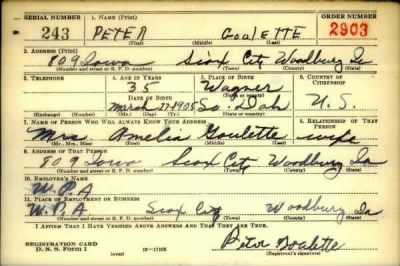 SERIAL NUMBER 1. NAME (Print) ORDER NUMBER
243 PETER GOULETTE 2903
(First) (Middle) (Last)
2. ADDRESS (Print)
809 Iowa Sioux City Woodbury Ia
(Number and street or R. F. D. number) (Town) (County) (State)
3. TELEPHONE 4. AGE IN YEARS 5. PLACE OF BIRTH 6. COUNTRY OF CITIZENSHIP
35 Wagner
DATE OF BIRTH (Town or county)
March 27 1905 So. Dak U.S.
(Exchange) (Number) (Mo.) (Day) (Yr.) (State or country)
7. NAME OF PERSON WHO WILL ALWAYS KNOW YOUR ADDRESS 8. RELATIONSHIP OF THAT PERSON
Mrs Amelia Goulette wife
(Mr., Mrs., Miss) (First) (Middle) (Last)
9. ADDRESS OF THAT PERSON
809 Iowa Sioux City Woodbury Ia
(Number and street or R. F. D. number) (Town) (County) (State)
10. EMPLOYER'S NAME
W.P.A
11. PLACE OF EMPLOYMENT OR BUSINESS
W.P.A Sioux City Woodbury Ia
(Number and street or R. F. D. number) (Town) (County) (State)
I AFFIRM THAT I HAVE VERIFIED ABOVE ANSWERS AND THAT THEY ARE TRUE.
REGISTRATION CARD
D. S. S. Form 1 Peter Goulette
(Registrant's signature)